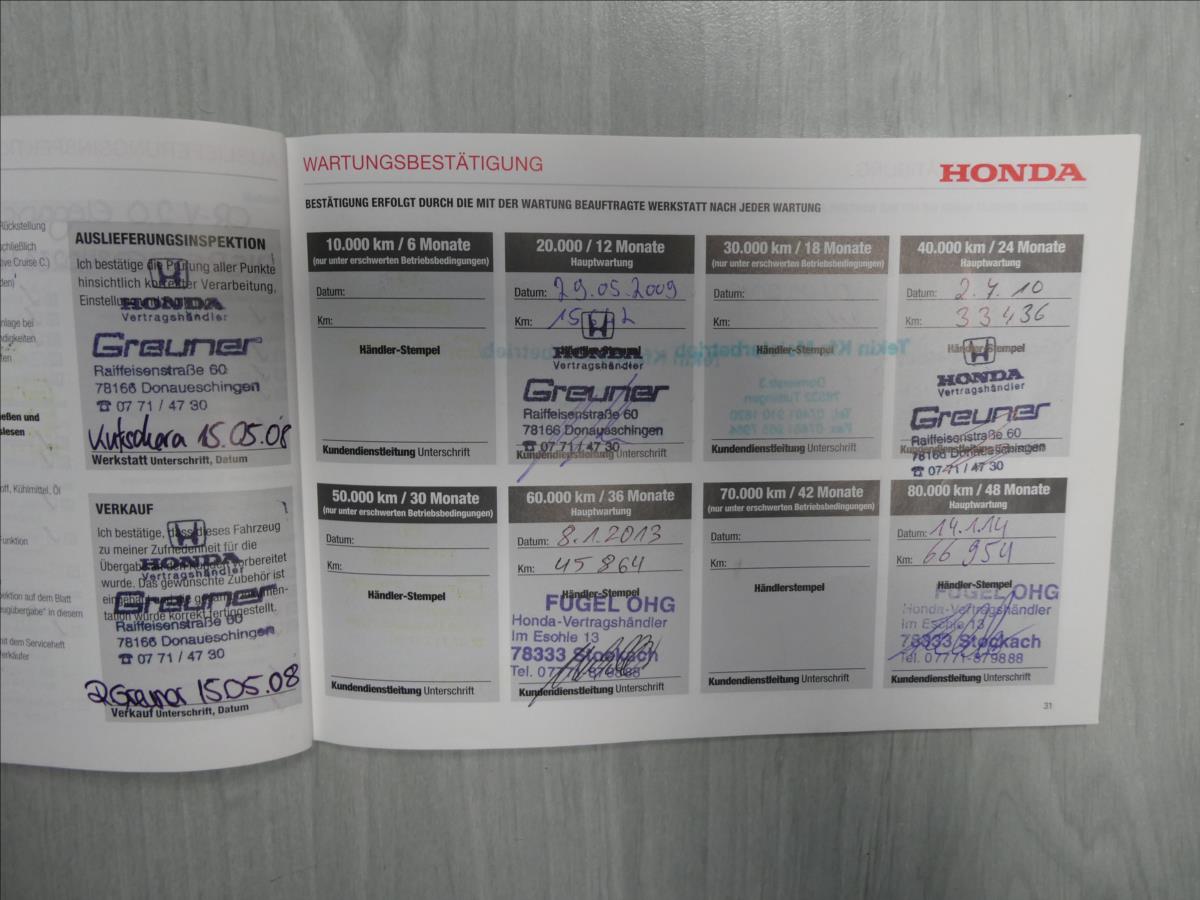 Rückstellung
AUSLIEFERUNGSINSPEKTION
Ich bestätige die Prüfung aller Punkte
hinsichtlich korrekter Verarbeitung,
HONDA
Vertragshändler
Greuner
Raiffeisenstraße 60
78166 Donaueschingen
☎ 07 71 / 47 30
Kutschara 15.05.08
Werkstatt Unterschrift, Datum
VERKAUF
Ich bestätige, dass dieses Fahrzeug
zu meiner Zufriedenheit für die
HONDA
Vertragshändler
wurde. Das gewünschte Zubehör ist
Greuner
tation wurde korrekt fertiggestellt.
Raiffeisenstraße 60
78166 Donaueschingen
☎ 07 71 / 47 30
Greuner 15.05.08
Verkauf Unterschrift, Datum
WARTUNGSBESTÄTIGUNG
HONDA
BESTÄTIGUNG ERFOLGT DURCH DIE MIT DER WARTUNG BEAUFTRAGTE WERKSTATT NACH JEDER WARTUNG
10.000 km / 6 Monate
(nur unter erschwerten Betriebsbedingungen)
Datum:
Km:
Händler-Stempel
Kundendienstleitung Unterschrift
20.000 / 12 Monate
Hauptwartung
Datum: 29.05.2009
Km:
HONDA
Vertragshändler
Greuner
Raiffeisenstraße 60
78166 Donaueschingen
☎ 07 71 / 47 30
Kundendienstleitung Unterschrift
30.000 km / 18 Monate
(nur unter erschwerten Betriebsbedingungen)
Datum:
Km:
Händler-Stempel
Kundendienstleitung Unterschrift
40.000 km / 24 Monate
Hauptwartung
Datum: 2.4.10
Km: 33436
Händler-Stempel
HONDA
Vertragshändler
Greuner
Raiffeisenstraße 60
78166 Donaueschingen
☎ 07 71 / 47 30
50.000 km / 30 Monate
(nur unter erschwerten Betriebsbedingungen)
Datum:
Km:
Händler-Stempel
Kundendienstleitung Unterschrift
60.000 km / 36 Monate
Hauptwartung
Datum: 8.1.2013
Km: 45864
Händler-Stempel
FUGEL OHG
Honda-Vertragshändler
Im Eschle 13
78333 Stockach
Tel. 07771-879888
Kundendienstleitung Unterschrift
70.000 km / 42 Monate
(nur unter erschwerten Betriebsbedingungen)
Datum:
Km:
Händlerstempel
Kundendienstleitung Unterschrift
80.000 km / 48 Monate
Hauptwartung
Datum: 14.1.14
Km: 66954
Händler-Stempel
FUGEL OHG
Honda-Vertragshändler
Im Eschle 13
78333 Stockach
Tel. 07771-879888
Kundendienstleitung Unterschrift
31